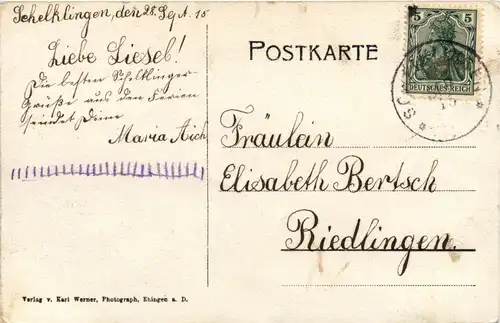 Schelklingen, den 28. Sept. 15
Liebe Liesel!
Die besten Schelklinger-
Grüße aus den Ferien
sendet Deine
Maria Aich
POSTKARTE
5 5
DEUTSCHES REICH
Fräulein
Elisabeth Bertsch
Riedlingen.
Verlag v. Karl Werner, Photograph, Ehingen a. D.